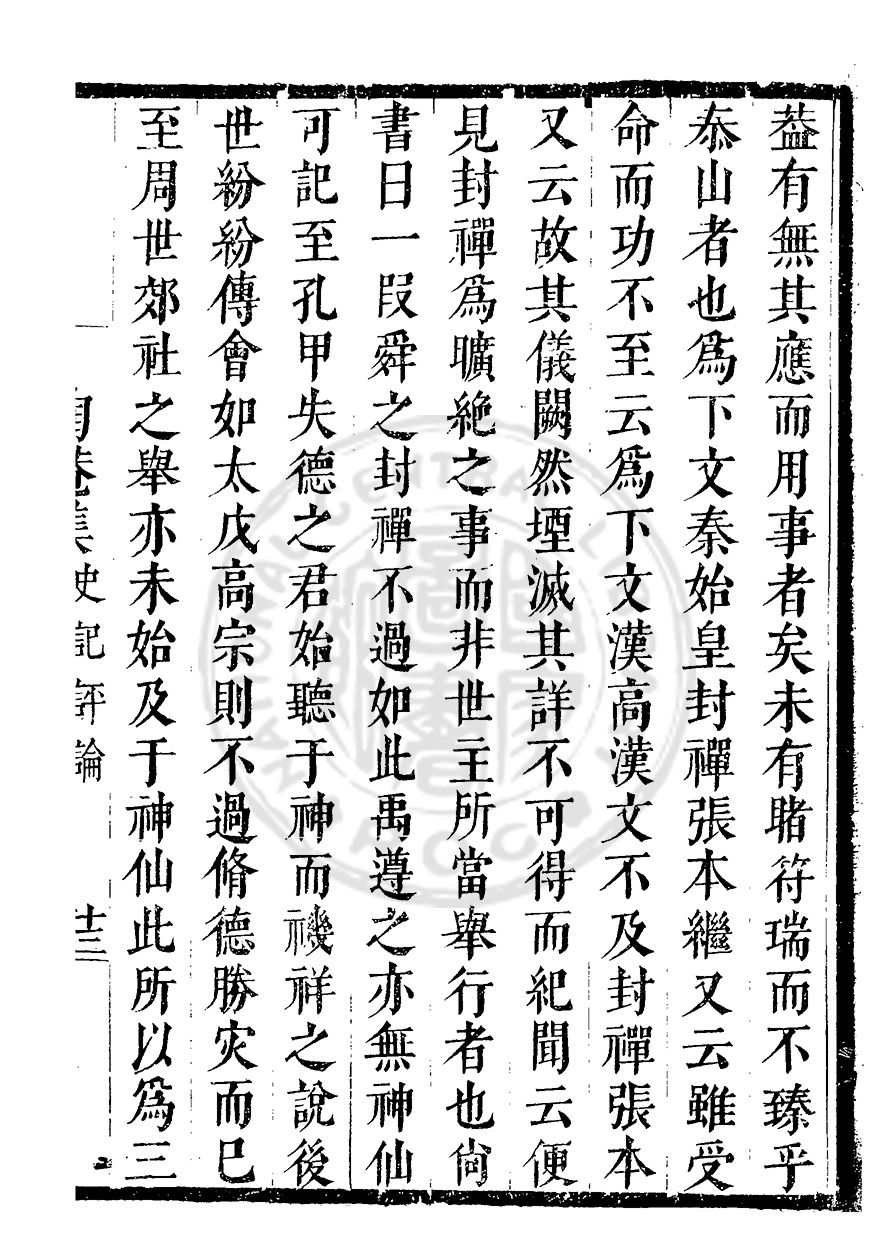 葢有無其應而用事者矣未有睹符瑞而不臻乎
泰山者也爲下文秦始皇封禪張本繼又云雖受
命而功不至云爲下文漢高漢文不及封禪張本
又云故其儀闕然堙滅其詳不可得而紀聞云便
見封禪爲曠絶之事而非世主所當舉行者也尙
書曰一段舜之封禪不過如此禹遵之亦無神仙
可記至孔甲失德之君始聽于神而禨祥之說後
世紛紛傳會如太戊高宗則不過脩德勝灾而巳
至周世郊社之舉亦未始及于神仙此所以爲三
陶菴集史記評論 十三